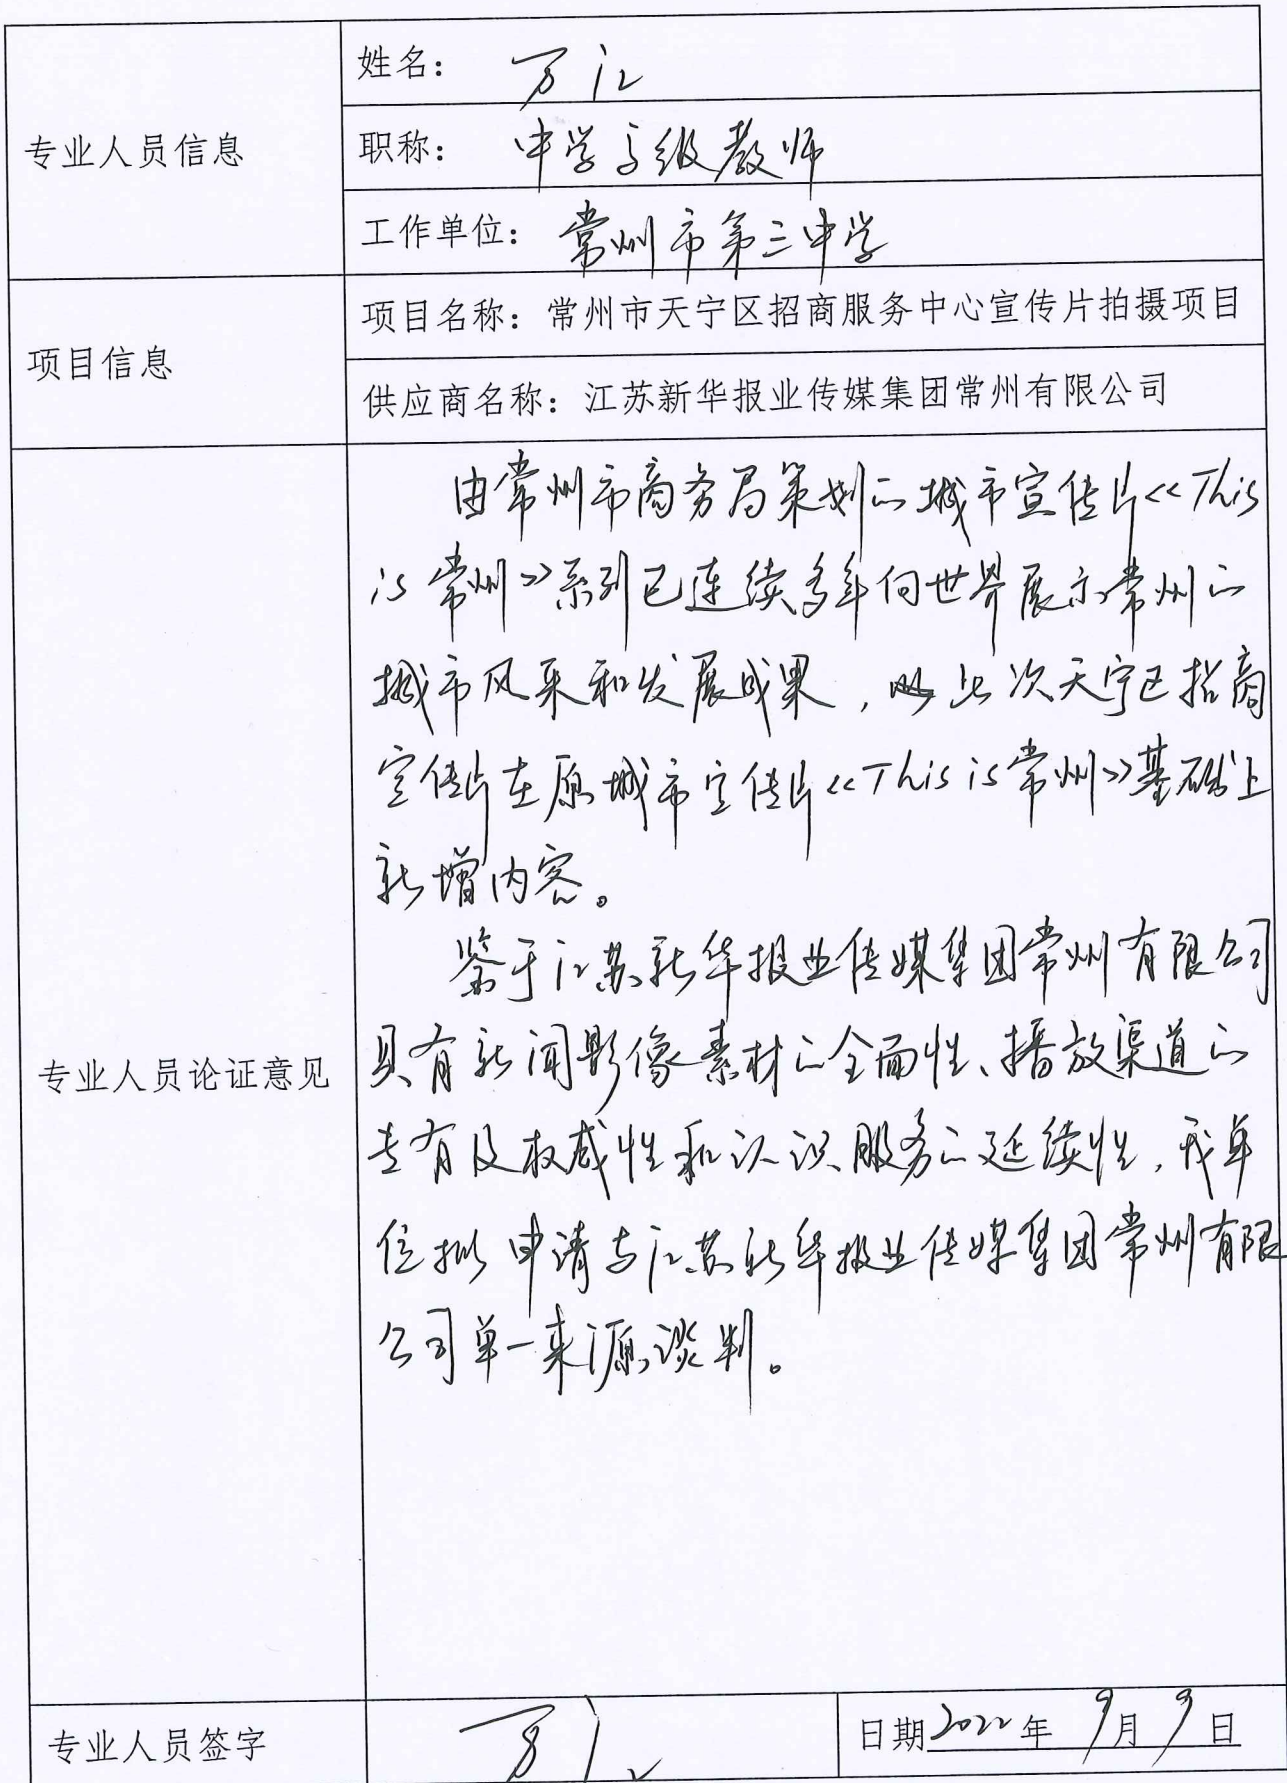 姓名：万江
专业人员信息
职称：中学高级教师
工作单位：常州市第三中学
项目信息
项目名称：常州市天宁区招商服务中心宣传片拍摄项目
供应商名称：江苏新华报业传媒集团常州有限公司
专业人员论证意见
由常州市商务局策划的城市宣传片《This
is 常州》系列已连续多年向世界展示常州的
城市风采和发展成果，此次天宁区招商
宣传片在原城市宣传片《This is 常州》基础上
新增内容。
鉴于江苏新华报业传媒集团常州有限公司
具有新闻影像素材的全面性、播放渠道的
专有及权威性和认识服务的延续性，我单
位拟申请与江苏新华报业传媒集团常州有限
公司单一来源谈判。
专业人员签字
万江
日期2022年9月9日